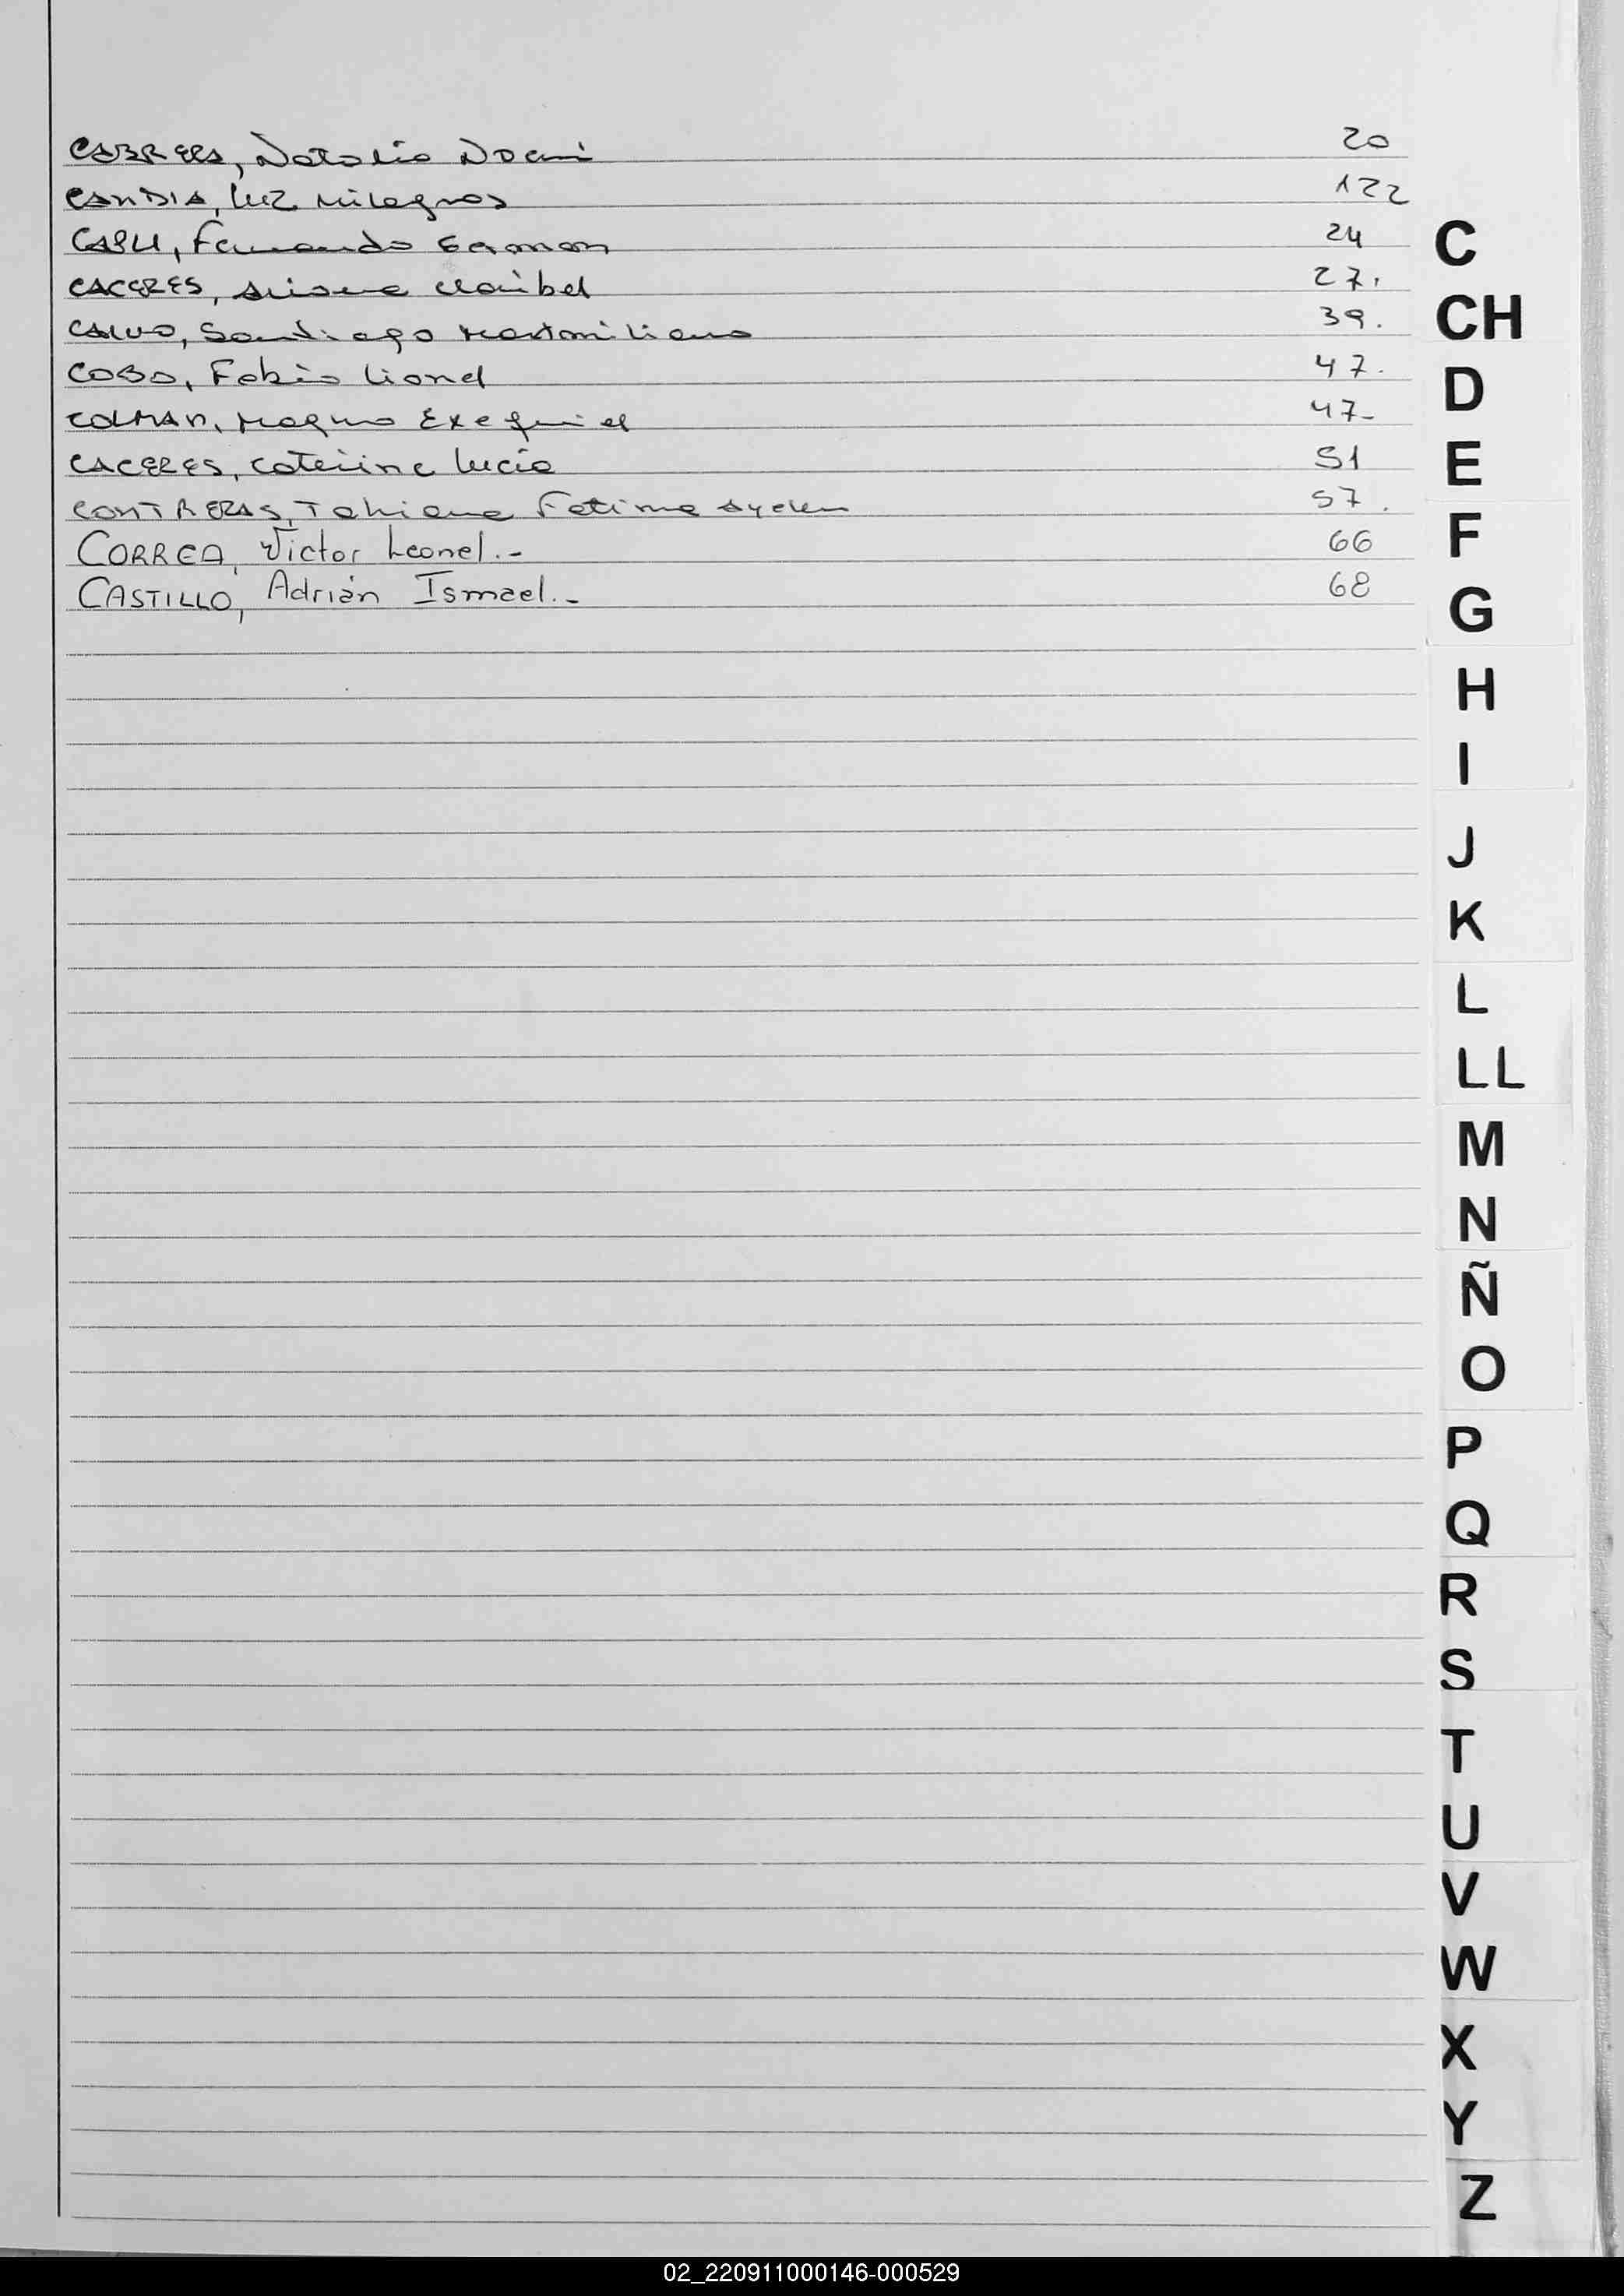 CABRERA, Natalia Noemi 20
CANDIA, Luz Milagros 122
CASU, Fernando German 24
CACERES, Ariana Maribel 27.
CALVO, Santiago Maximiliano 39.
COBO, Fabio Lionel 47.
COLMAN, Magno Exequiel 47-
CACERES, Caterine Lucia 51
CONTRERAS, Tahiana Fatima Ayelen 57.
CORREA, Victor Leonel.- 66
CASTILLO, Adrián Ismael.- 68
C
CH
D
E
F
G
H
I
J
K
L
LL
M
N
Ñ
O
P
Q
R
S
T
U
V
W
X
Y
Z
02_220911000146-000529